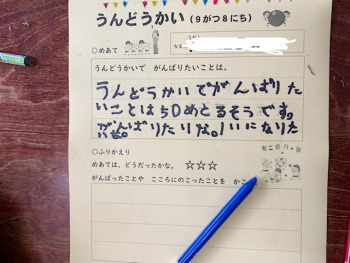 うんどうかい（9がつ8にち）
○めあて
なま
うんどうかいで　がんばりたいことは、
うんどうかいでがんばりた
いことは50めとるそうです。
がんばりたいな。1いになりた
○ふりかえり
めあては、どうだったかな。　☆☆☆
がんばったことや　こころにのこったことを　かこ